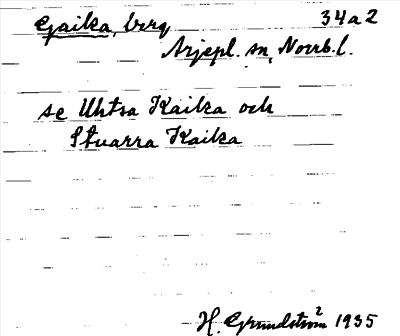 Gaika, berg 34a2
Arjepl. sn, Norrb. l.
se Uhtsa Kaika och
Stuarra Kaika
H. Grundström² 1935